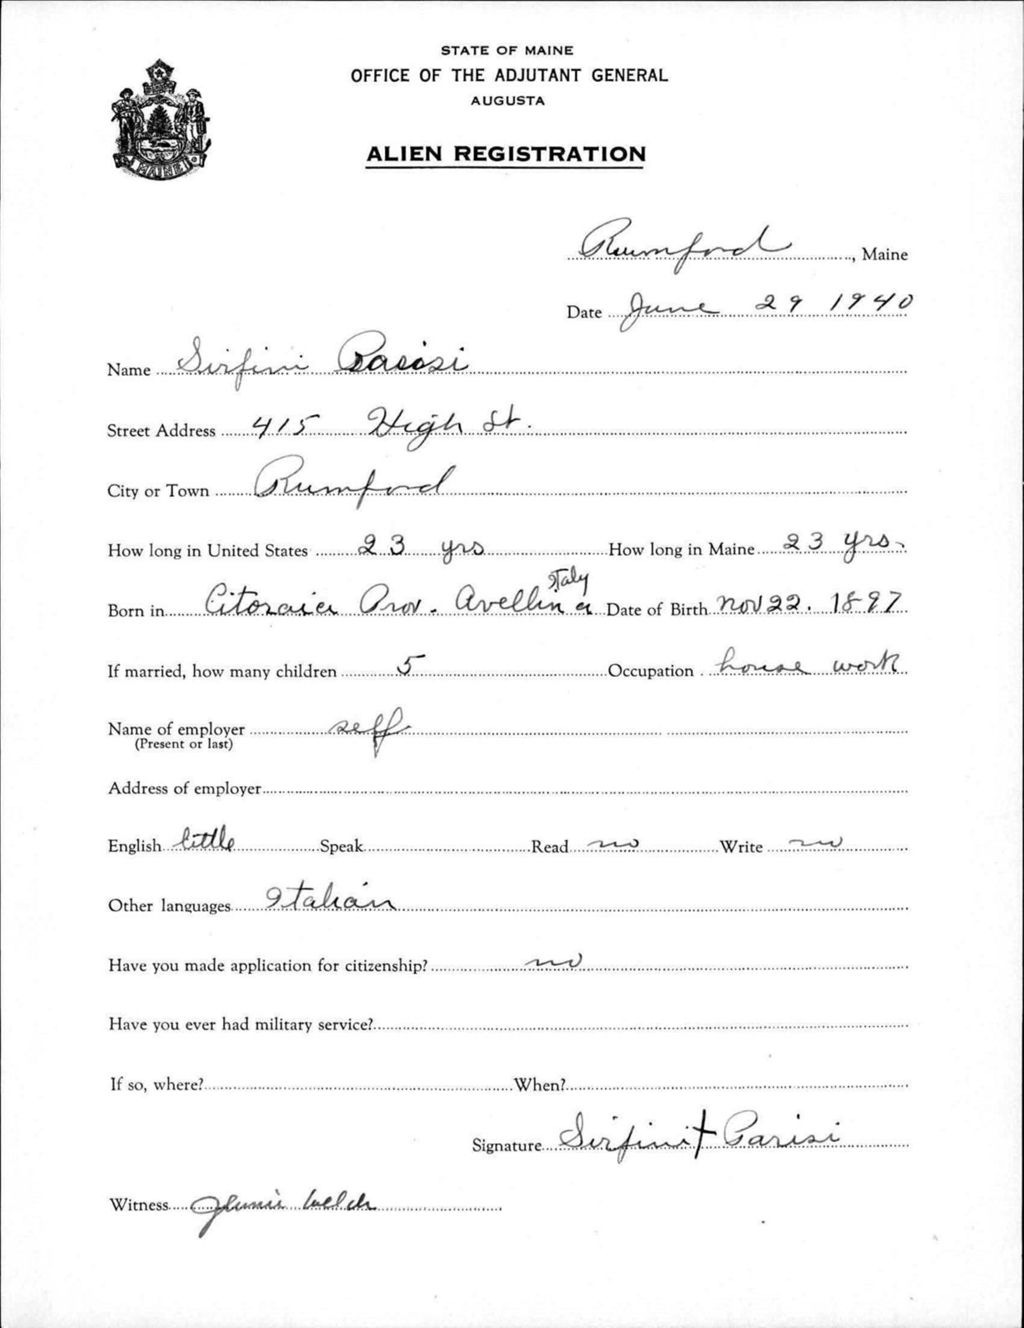 STATE OF MAINE
OFFICE OF THE ADJUTANT GENERAL
AUGUSTA
ALIEN REGISTRATION
MAINE
Rumford, Maine
Date June 29 1940
Name Sirfini Parisi
Street Address 415 High St.
City or Town Rumford
How long in United States 23 yrs How long in Maine 23 yrs.
Italy
Born in Prov. Avellina Date of Birth Nov 22. 1897
If married, how many children 5 Occupation house work
Name of employer self
(Present or last)
Address of employer
English little Speak Read no Write no
Other languages Italian
Have you made application for citizenship? no
Have you ever had military service?
If so, where? When?
Signature Sirfini + Parisi
Witness Jennie Welch